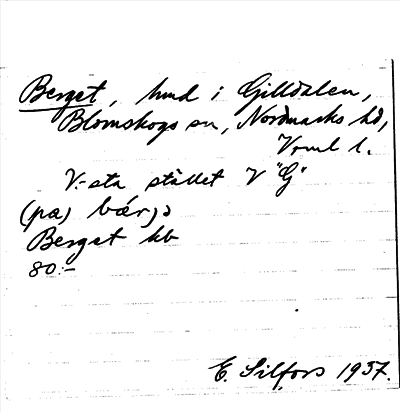 Berget, hmd i Gilldalen,
Blomskogs sn, Nordmarks hd,
Vrml l.
V:-sta stället V "G"
(pa) bær,
Berget hb
80:-
E. Silfors 1937.